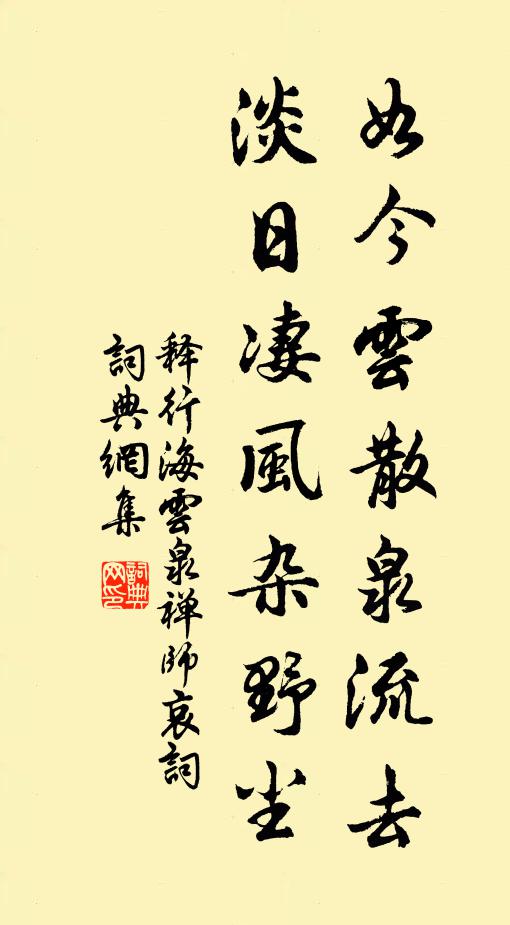 如今雲散泉流去
淡日凄風杂野尘
释行海雲泉禅師哀詞
詞典網集
詞典网印